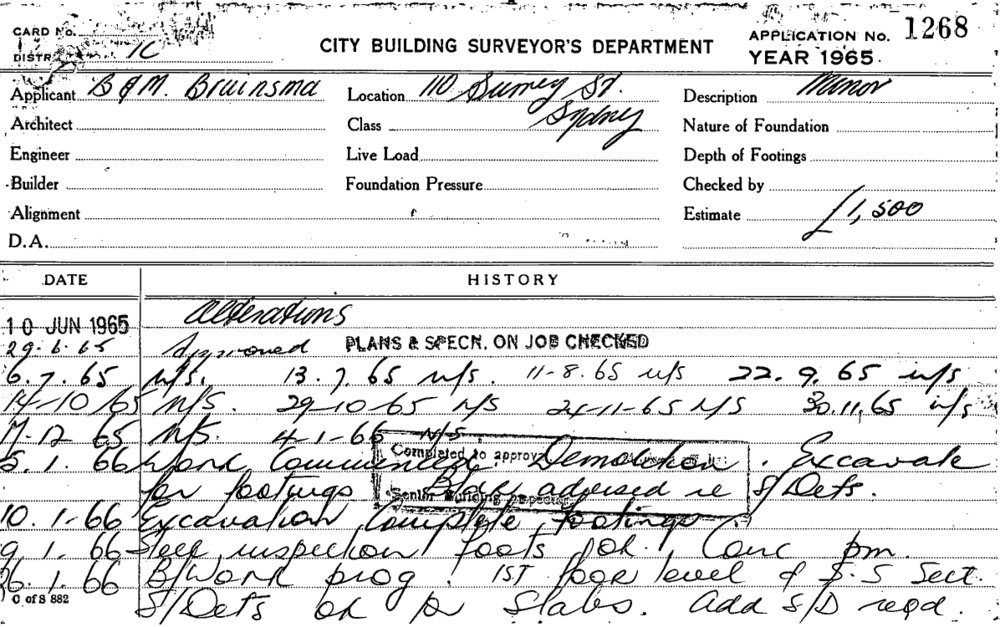 CARD No.
DISTR. 1C
CITY BUILDING SURVEYOR'S DEPARTMENT
APPLICATION No. 1268
YEAR 1965
Applicant B & M. Bruinsma Location 110 Surrey St. Sydney Description Minor
Architect Class Nature of Foundation
Engineer Live Load Depth of Footings
Builder Foundation Pressure Checked by
Alignment Estimate £1,500
D.A.
DATE HISTORY
10 JUN 1965 Alterations
29.6.65 Approved PLANS & SPECN. ON JOB CHECKED
6.7.65 N/S. 13.7.65 N/S. 11-8.65 N/S 22.9.65 N/S
14-10/65 N/S. 29-10-65 N/S 24-11-65 N/S 30.11.65 N/S
7.12 65 N/S. 4-1-66 N/S.
5.1.66 Work Commenced. Demolition. Excavate
Completed to approv
for footings advised re S/Dets.
Senior Building Inspector
10.1-66 Excavation Complete footings
9.1.66 Steel inspection foots ok. Conc pm.
26.1.66 B/Work prog. 1ST floor level of S.S Sect.
S/Dets ok for Slabs. Add S/D reqd.
C of S 882